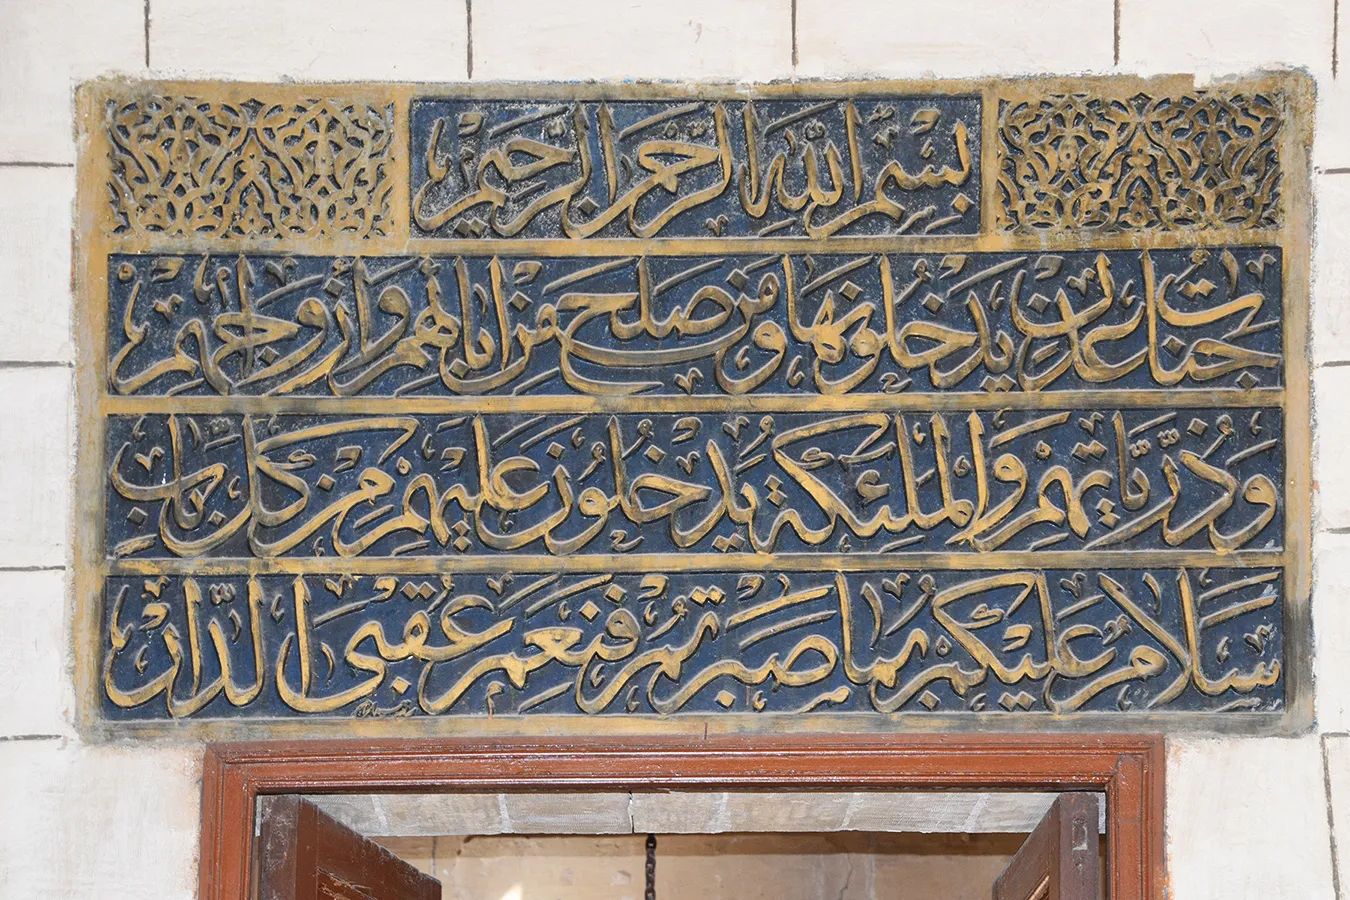 بسم الله الرحمن الرحيم
جنات عدن يدخلونها ومن صلح من ابائهم وأزواجهم
وذرياتهم والملئكة يدخلون عليهم من كل باب
سلام عليكم بما صبرتم فنعم عقبى الدار